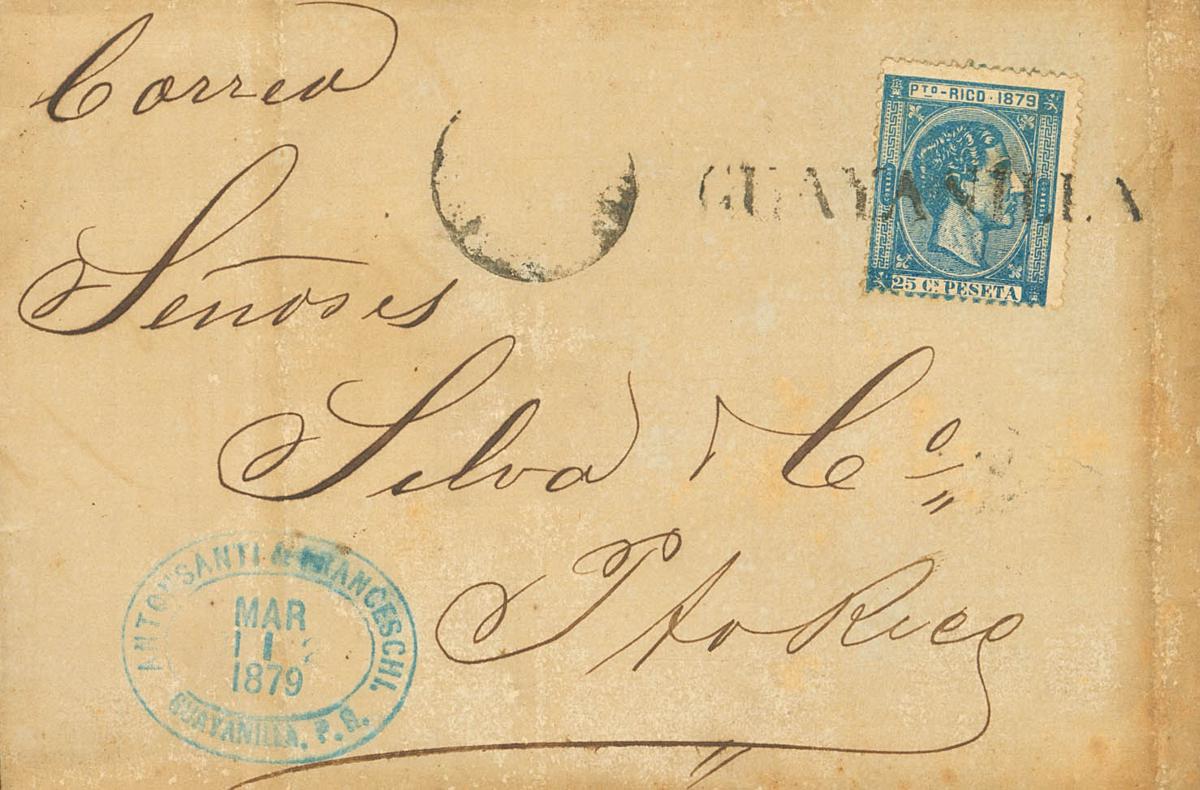 Correo
PTO-RICO·1879
GUAYANILLA
25 CS PESETA
Señores
Silva y Cª
Pto Rico
ANTONSANTI & FRANCESCHI.
MAR
11
1879
GUAYANILLA, P. R.